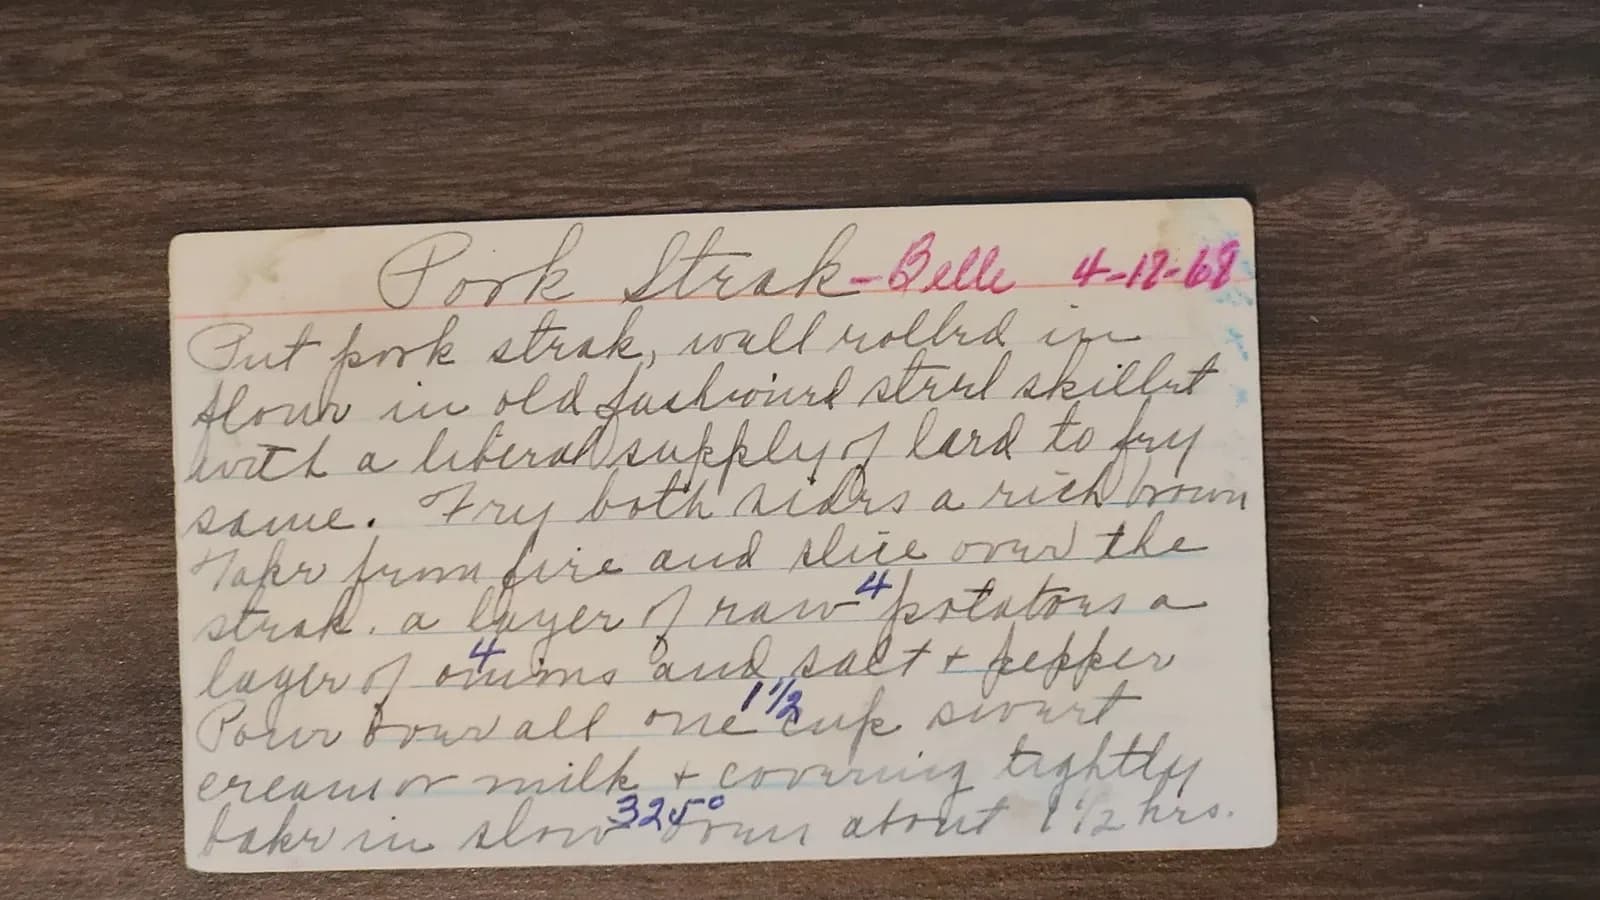 Pork Steak - Belle 4-18-68
Put pork steak, well rolled in
flour in old fashioned steel skillet
with a liberal supply of lard to fry
same. Fry both sides a rich brown
Take from fire and slice over the
steak. a layer of raw 4 potatoes a
layer of 4 onions and salt + pepper
Pour over all one 1 1/2 cup sweet
cream or milk + covering tightly
bake in slow 325° oven about 1 1/2 hrs.